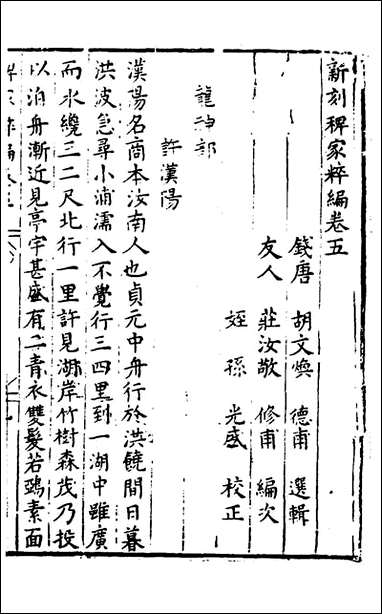 新刻稗家粹編卷五
錢唐 胡文煥 德甫 選輯
友人 莊汝敬 修甫 編次
姪孫 光盛 校正
龍神部
許漢陽
漢陽名商本汝南人也貞元中舟行於洪饒間日暮
洪波急尋小浦濡入不覺行三四里到一湖中雖廣
而水纔三二尺北行一里許見湖岸竹樹森茂乃投
以泊舟漸近見亭宇甚盛有二青衣雙髮若鴉素面